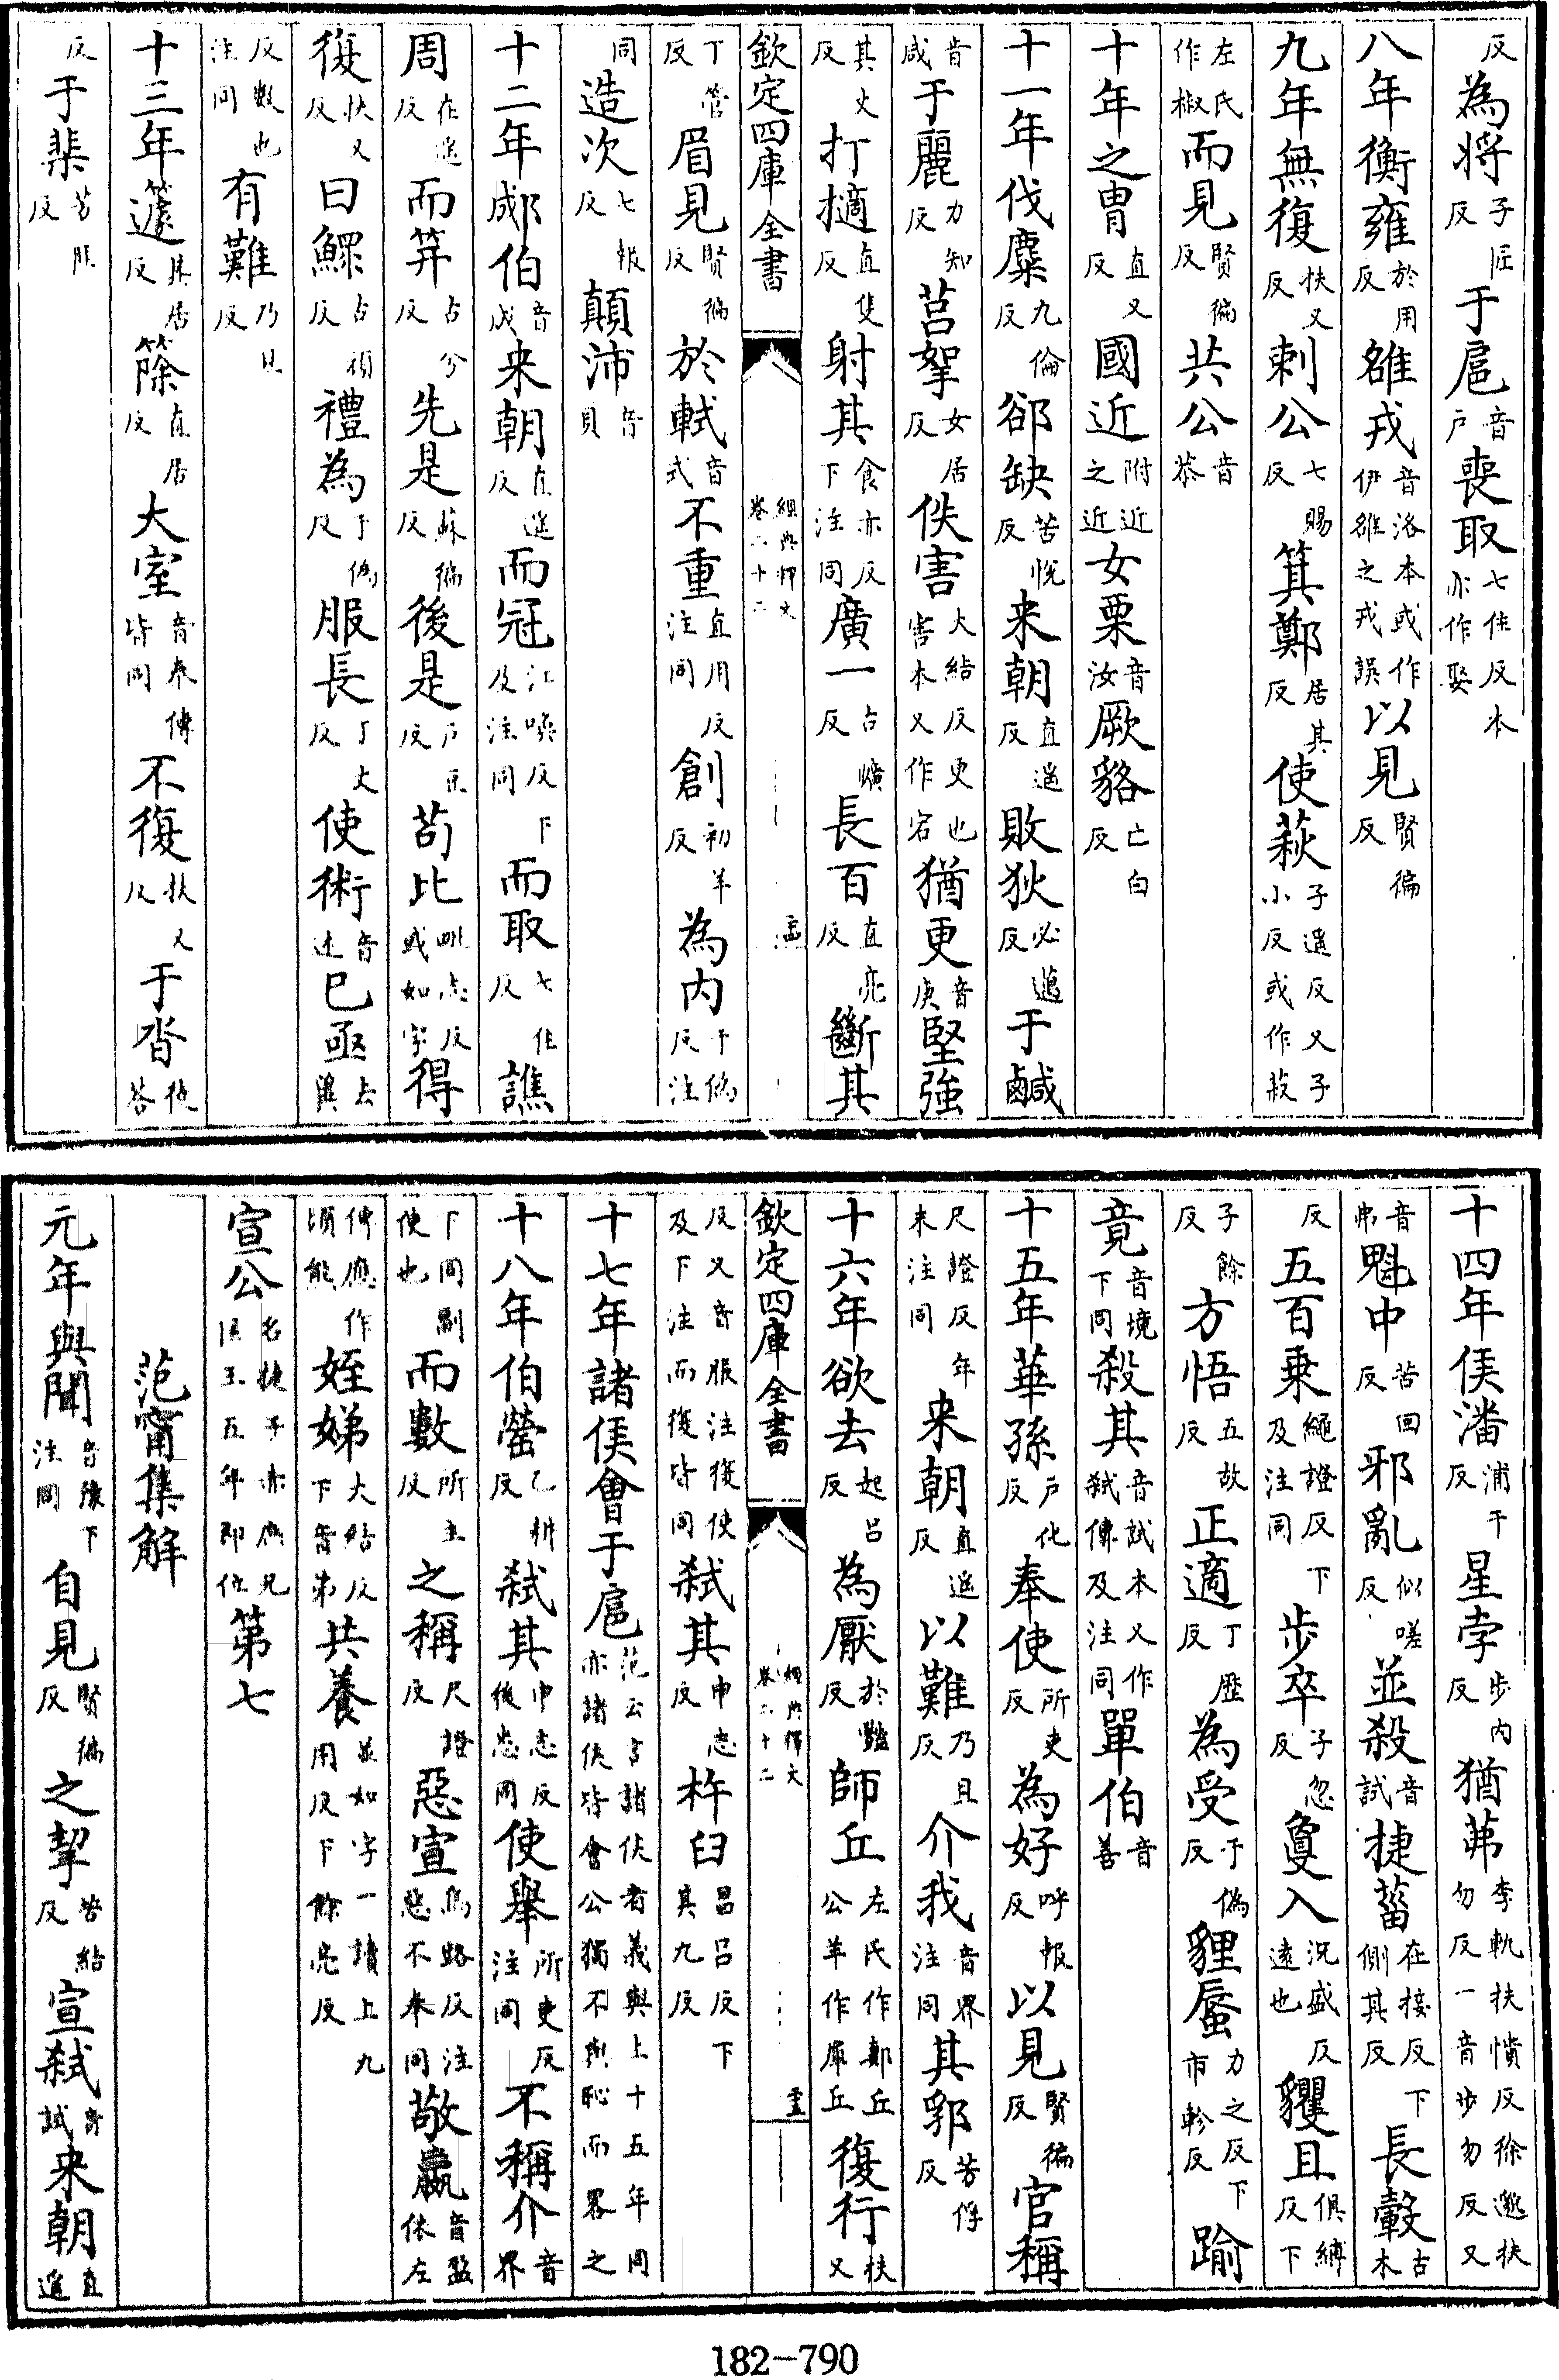 反為將子匠反于扈音戶喪取七住反本亦作娶
八年衡雍於用反雒戎音洛本或作伊雒之戎誤以見賢徧反
九年無復扶又反刺公七賜反箕鄭居其反使萩子遥反又子小反或作菽
左氏作椒而見賢徧反共公音恭
十年之胄直又反國近附近之近女栗音汝厥貉亡白反
十一年伐麋九倫反郤缺苦悅反来朝直遥反敗狄必邁反于鹹
音咸于麗力知反莒挐女居反佚害大結反更也害本又作宕猶更音庚堅強
其丈反打擿直隻反射其食亦反下注同廣一古曠反長百直亮反斷其
欽定四庫全書 經典釋文卷二十二 三十四
丁管反眉見賢徧反於軾音式不重直用反注同創初羊反為内于偽反注
同造次七報反顛沛音貝
十二年郕伯音成来朝直遥反而冠江喚反下及注同而取七住反譙
周在遥反而笄古兮反先是蘇徧反後是戶豆反苟比毗志反或如字得
復扶又反曰鰥古頑反禮為于偽反服長丁丈反使術音述已亟去冀
反數也注同有難乃旦反
十三年籧其居反篨直居反大室音泰傳皆同不復扶又反于沓徒荅
反于棐芳匪反
十四年侯潘浦干反星孛步内反猶茀李軌扶憤反徐邈扶勿反一音步勿反又
音弗魁中苦回反邪亂似嗟反並殺音試捷菑在接反下側其反長轂古木
反五百乗繩證反下及注同步卒子忽反敻入況盛反遠也貜且俱縛反下
子餘反方悟五故反正適丁歷反為受于偽反貍蜃力之反下市軫反踰
竟音境下同殺其音試本又作弑傳及注同單伯音善
十五年華孫戶化反奉使所吏反為好呼報反以見賢徧反官稱
尺證反年末注同来朝直遥反以難乃旦反介我音界注同其郛芳俘反
十六年欲去起呂反為厭於豔反師丘左氏作郪丘公羊作犀丘復行扶又
欽定四庫全書 經典釋文卷二十二 三十五
反又音服注復使及下注而復皆同弑其申志反杵臼昌呂反下其九反
十七年諸侯會于扈范云言諸侯者義與上十五年同亦諸侯皆會公獨不與恥而畧之
十八年伯罃乙耕反弑其申志反後悉同使舉所吏反注同不稱介音界
下同副使也而數所主反之稱尺證反惡宣烏路反注惡不奉同敬嬴音盈依左
傳應作頃熊姪娣大結反下音弟共養並如字一讀上九用反下餘亮反
宣公名捷子赤庶兄匡王五年即位第七
范甯集解
元年與聞音豫下注同自見賢徧反之挈苦結反宣弑音試来朝直遥
182-790